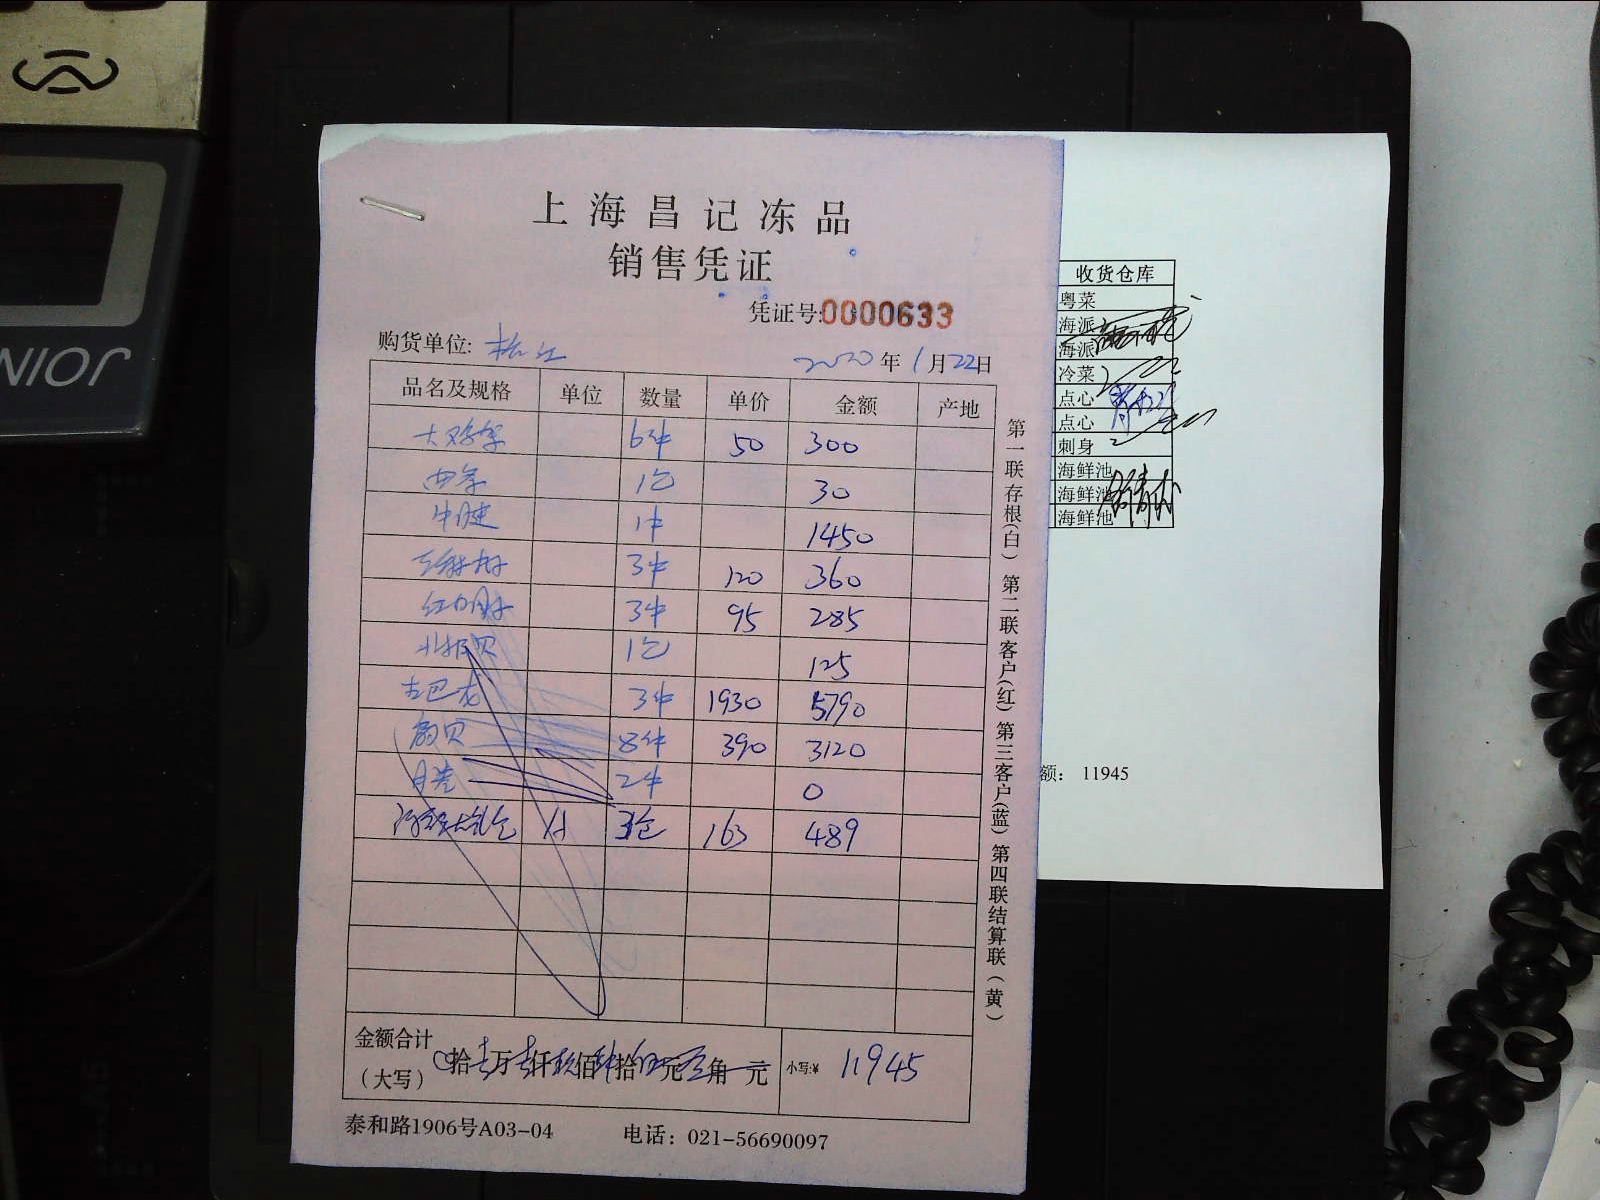 上海昌记冻品
销售凭证
凭证号:0000633
购货单位: 松江 2020年1月22日
品名及规格 单位 数量 单价 金额 产地
大鸡架 6件 50 300
西芹 1包 30
牛腱 1件 1450
3件 120 360
3件 95 285
北极贝 1包 125
古巴龙 3件 1930 5790
扇贝 8件 390 3120
2件 0
3包 163 489
金额合计
(大写) 拾壹万壹仟玖佰肆拾伍元 角 元 小写:¥ 11945
泰和路1906号A03-04 电话：021-56690097
第一联存根(白) 第二联客户(红) 第三客户(蓝) 第四联结算联(黄)
收货仓库
粤菜
海派
海派
冷菜
点心
点心
刺身
海鲜池
海鲜池
海鲜池
额： 11945
JOIN